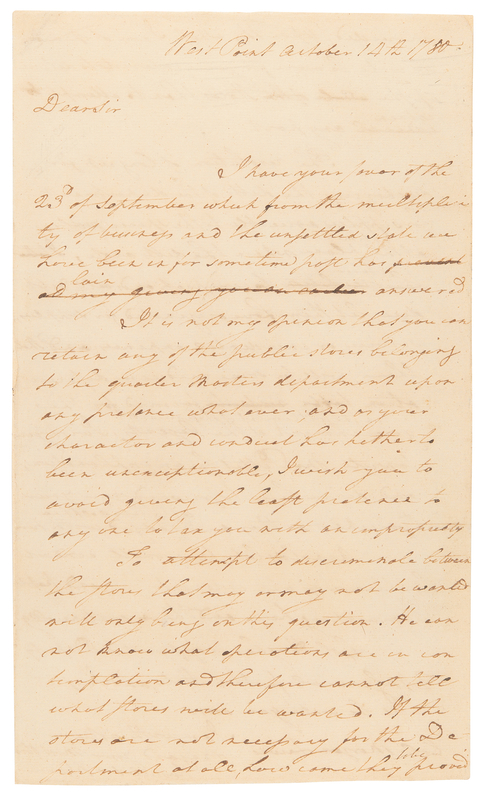 West Point October 14th 1780:
Dear Sir
I have your favor of the
23d of September which from the multiplici
ty of business and the unsettled state we
have been in for sometime past has prevent
lain
ed my giving you an earlier answered
It is not my opinion that you can
retain any of the public stores belonging
to the quarter Masters department upon
any pretence whatever; and as your
character and conduct has hetherto
been unexceptionable, I wish you to
avoid giving the least pretence to
any one to tax you with an impropriety
To attempt to discriminate between
the stores that may or may not be wanted
will only bring on this question. He can
not know what operations are in con
templation and therefore cannot tell
what stores will be wanted. If the
stores are not necessary for the De
partment at all, how came they to be provid